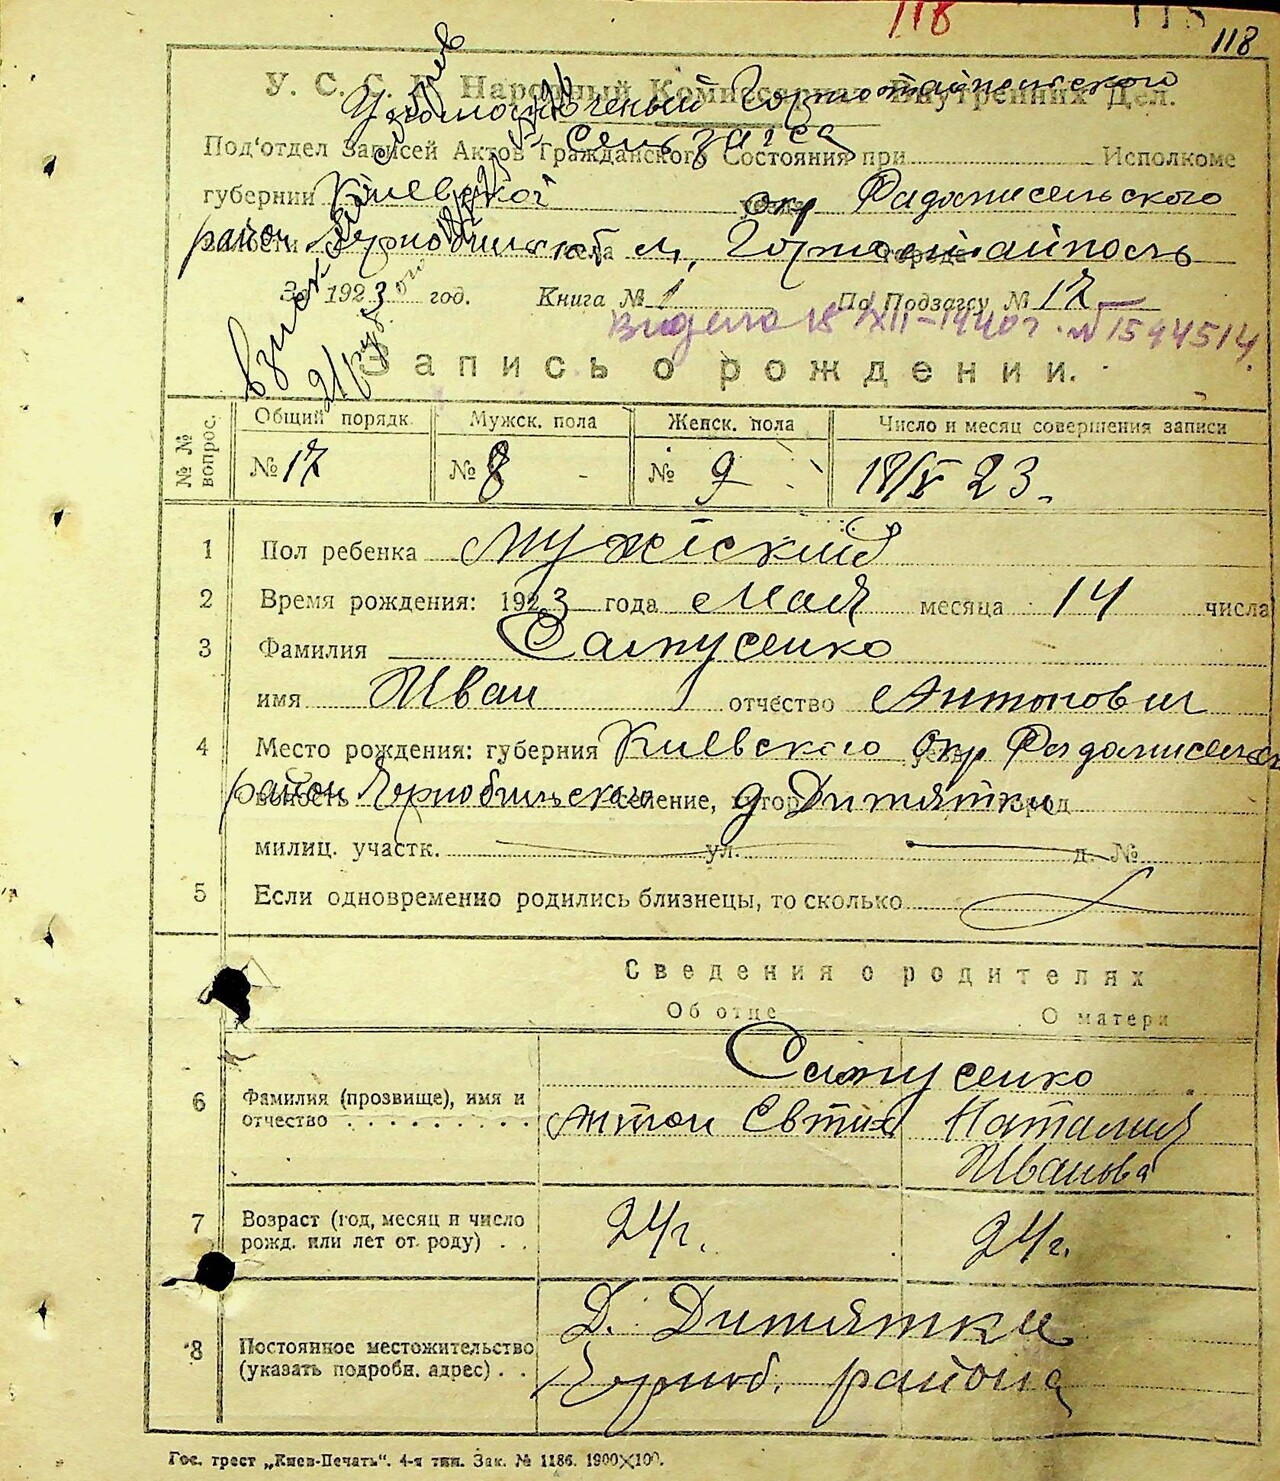 118 118
118
У. С. С. Р. Народный Комиссариат Внутренних Дел.
Уполномоченый Горностайпольского
Сельзагса
Под'отдел Записей Актов Гражданского Состояния при Исполкоме
губернии Киевской окр Радомисельского
район Чернобильск села м. Горностайполь
За 1923 год. Книга № 1 По Подзагсу № 17
Видано 18/XII-1940г. № 1594514
Запись о рождении.
№ № вопрос. Общий порядк. Мужск. пола Женск. пола Число и месяц совершения записи
№ 17 № 8 № 9 18/V 23
1 Пол ребенка мужіский
2 Время рождения: 1923 года Мая месяца 14 числа
3 Фамилия Сапусенко
имя Иван отчество Антонович
4 Место рождения: губерния Киевского окр Радомисельск
район Чернобильского селение, д Дитятки город
милиц. участк. ул. д. №
5 Если одновременно родились близнецы, то сколько
Сведения о родителях
Об отце О матери
Сапусенко
6 Фамилия (прозвище), имя и
отчество . . . . . . . . . Антон Евтих Наталия
Иванова
7 Возраст (год, месяц и число
рожд. или лет от роду) . . 24г. 24г.
Д. Дитятки
8 Постоянное местожительство
(указать подробн. адрес) . . Черноб. района
Гос. трест „Киев-Печать“. 4-я тип. Зак. № 1186. 1900×100.